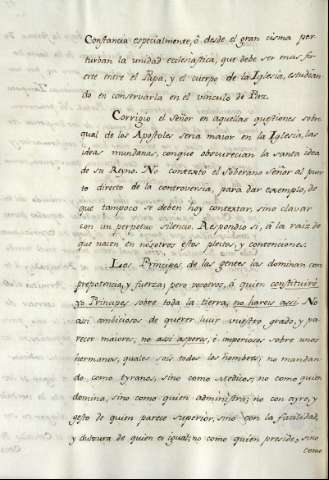 Constancia especialmente, ò desde el gran cisma per-
turban la unidad eclesiastica, que debe ser mas fu-
erte entre el Papa, y el cuerpo de la Iglesia, estudian-
do en conservarla en el vinculo de Paz.
Corrigió el Señor en aquellas questiones sobre
qual de los Apostoles seria maior en la Iglesia, las
ideas mundanas, conque obscurecian la santa idea
de su Reyno. No contextó el Soberano Señor al pun-
to directo de la controversia, para dar exemplo, de
que tampoco se deben hoy contextar, sino clavar
con un perpetuo silencio. Respondio si, á la raiz de
que nacen en nosotros estos pleitos, y contenciones.
Los Principes de las gentes las dominan con
prepotencia, y fuerza; pero vosotros, á quien constituiré
yo Principes sobre toda la tierra, no hareis assi. No
assi ambiciosos de querer lucir vuestro grado, y pa-
recer maiores, no assi asperos, é imperiosos sobre unos
hermanos, quales sois todos los hombres; no mandan-
do, como tyranos, sino como Medicos; no como quien
domina, sino como quien administra; no con ayre, y
gesto de quien parece superior, sino con la facilidad,
y dulzura de quien es igual; no como quien preside, sino
como